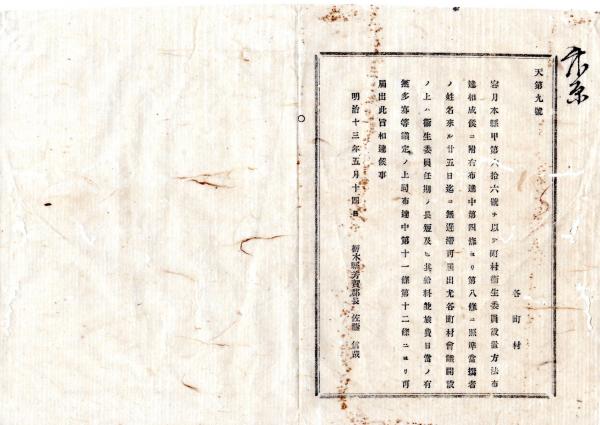 天第九號
各町村
客月本縣甲第六拾六號ヲ以テ町村衞生委員設置方法布
達相成候ニ附右布達中第四條ヨリ第八條ニ照準當撰者
ノ姓名來ル廿五日迄ニ無遲滯可屆出尤各町村會議開設
ノ上ハ衞生委員任期ノ長短及ヒ其給料旅費日當ノ有
無多寡等議定ノ上同布達中第十一條第十二條ニヨリ可
屆出此旨相達候事
明治十三年五月十四日
栃木縣芳賀郡長 佐藤 信